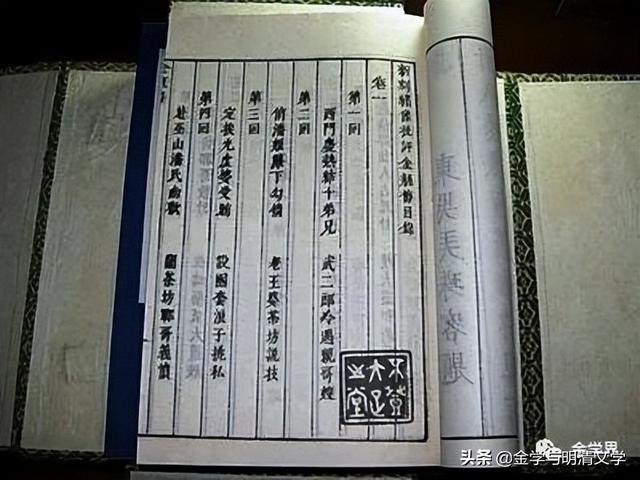 東吳弄珠客題
新刻繡像批評金瓶梅目錄
卷一
第一回
西門慶熱結十弟兄　武二郎冷遇親哥嫂
第二回
俏潘娘簾下勾情　老王婆茶坊說技
第三回
定挨光虔婆受賄　設圈套浪子挑私
第四回
赴巫山潘氏幽歡　鬧茶坊鄆哥義憤
不登大雅之堂
金学界
头条 @金学与明清文学